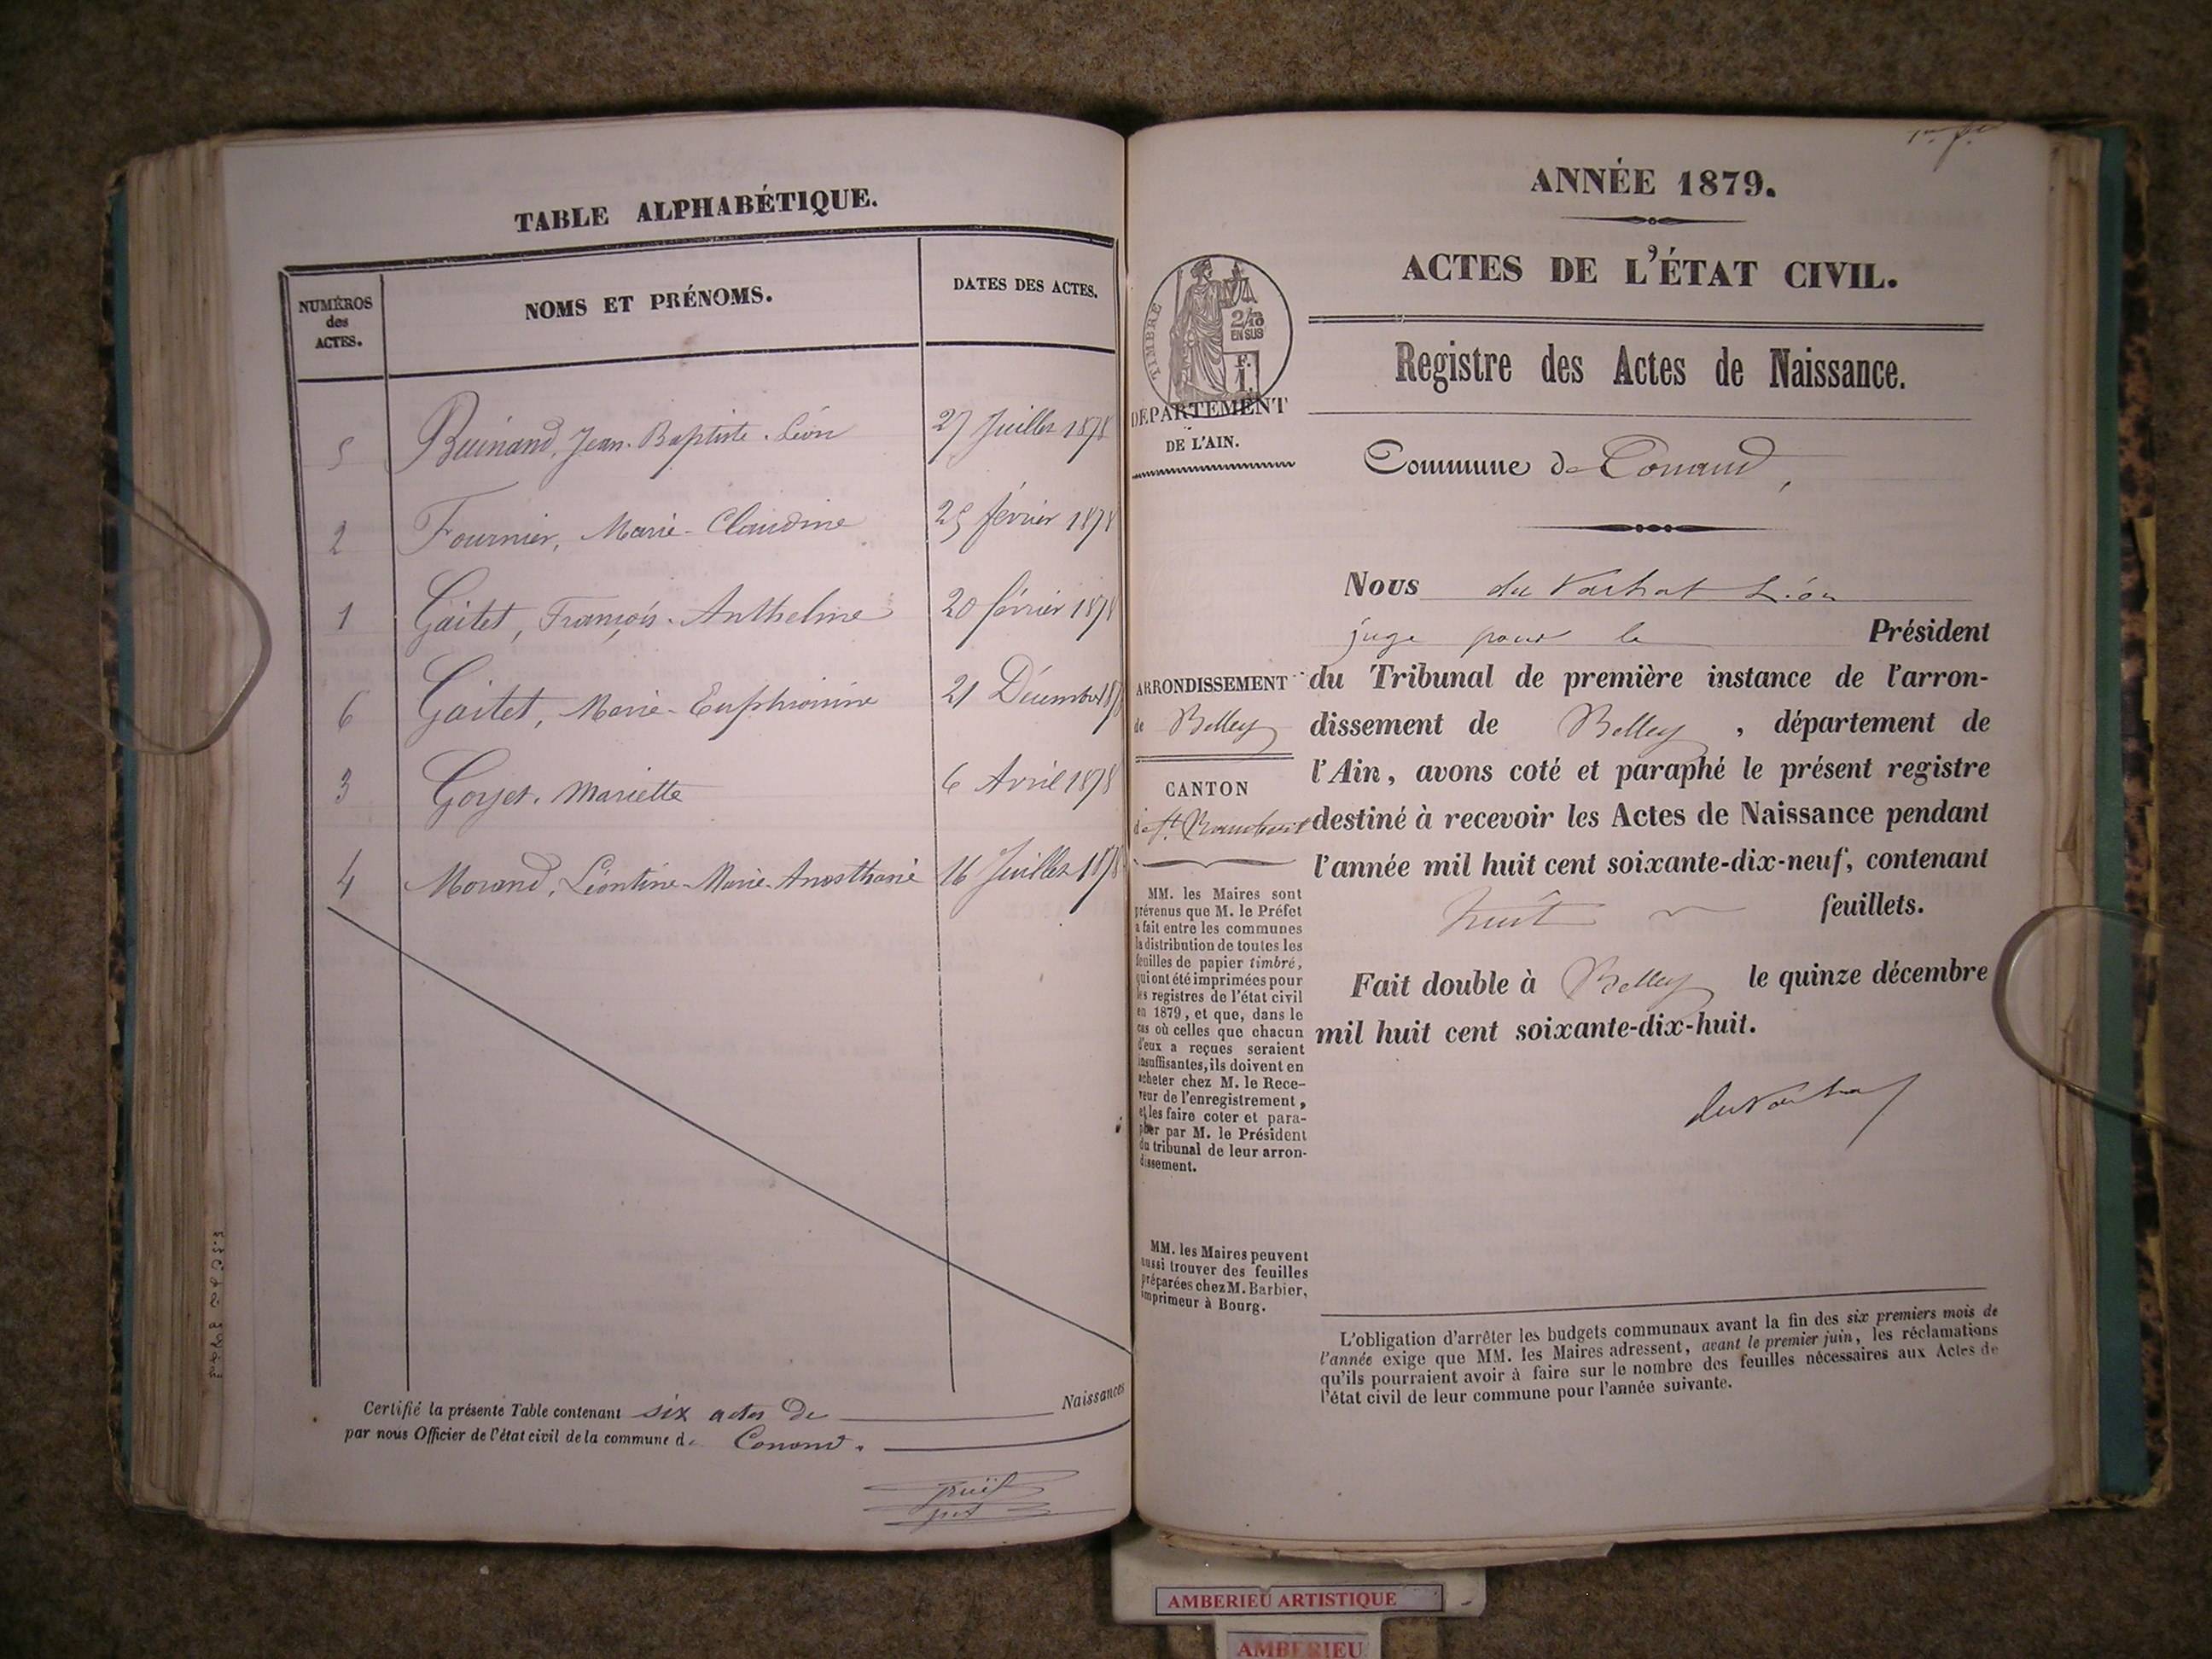 TABLE ALPHABÉTIQUE.
NUMÉROS
des
ACTES.
NOMS ET PRÉNOMS.
DATES DES ACTES.
5 Buinand, Jean-Baptiste-Léon 27 Juillet 1878
2 Fournier, Marie-Claudine 25 février 1878
1 Gaitet, François-Anthelme 20 février 1878
6 Gaitet, Marie-Euphrosine 21 Décembre 1878
3 Goyet, Mariette 6 Avril 1878
4 Morand, Léontine-Marie- 16 Juillet 1878
Certifié la présente Table contenant six actes de Naissances
par nous Officier de l'état civil de la commune de Conand.
ANNÉE 1879.
ACTES DE L'ÉTAT CIVIL.
TIMBRE
2/10
EN SUS
F.
1.
DÉPARTEMENT
DE L'AIN.
Registre des Actes de Naissance.
Commune de Conand,
Nous du Vachat Léon
juge pour le Président
du Tribunal de première instance de l'arron-
dissement de Belley, département de
l'Ain, avons coté et paraphé le présent registre
destiné à recevoir les Actes de Naissance pendant
l'année mil huit cent soixante-dix-neuf, contenant
huit feuillets.
Fait double à Belley le quinze décembre
mil huit cent soixante-dix-huit.
duVachat
ARRONDISSEMENT
de Belley
CANTON
de St. Rambert
MM. les Maires sont
prévenus que M. le Préfet
a fait entre les communes
la distribution de toutes les
feuilles de papier timbré,
qui ont été imprimées pour
les registres de l'état civil
en 1879, et que, dans le
cas où celles que chacun
d'eux a reçues seraient
insuffisantes, ils doivent en
acheter chez M. le Rece-
veur de l'enregistrement,
et les faire coter et para-
pher par M. le Président
du tribunal de leur arron-
dissement.
MM. les Maires peuvent
aussi trouver des feuilles
préparées chez M. Barbier,
imprimeur à Bourg.
L'obligation d'arrêter les budgets communaux avant la fin des six premiers mois de
l'année exige que MM. les Maires adressent, avant le premier juin, les réclamations
qu'ils pourraient avoir à faire sur le nombre des feuilles nécessaires aux Actes de
l'état civil de leur commune pour l'année suivante.
AMBERIEU ARTISTIQUE
AMBERIEU